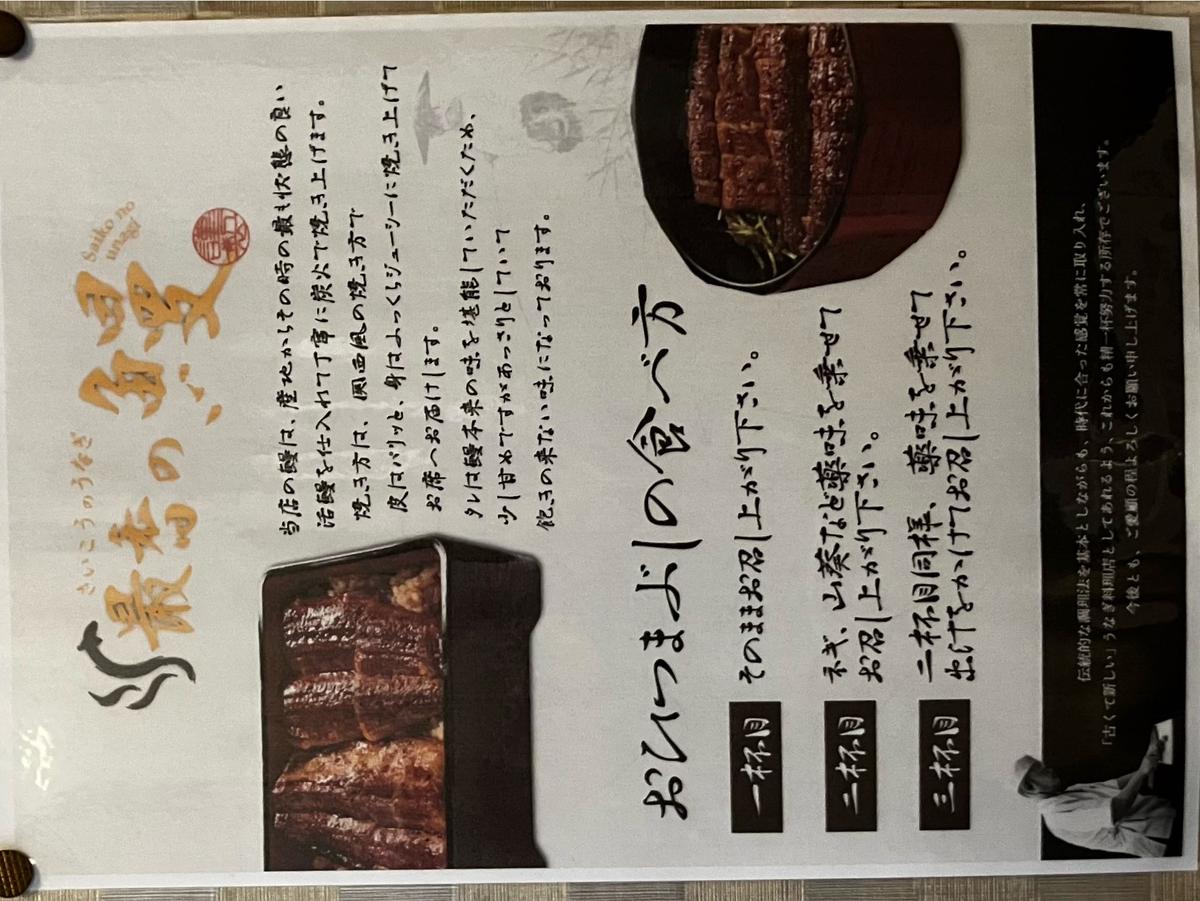 さいこうのうなぎ
最香の鰻
Saiko no
unagi
当店の鰻は、産地からその時の最も状態の良い
活鰻を仕入れて丁寧に炭火で焼き上げます。
焼き方は、関西風の焼き方で
皮はパリッと、身はふっくらジューシーに焼き上げて
お席へお届けします。
タレは鰻本来の味を堪能していただくため、
少し甘めですがあっさりとしていて
飽きの来ない味になっております。
おひつまぶしの食べ方
一杯目
そのままお召し上がり下さい。
二杯目
ネギ、山葵など薬味を乗せて
お召し上がり下さい。
三杯目
二杯目同様、薬味を乗せて
出汁をかけてお召し上がり下さい。
伝統的な調理法を基本としながらも、時代に合った感覚を常に取り入れ、
「古くて新しい」うなぎ料理店としてあれるよう、これからも精一杯努力する所存でございます。
今後とも、ご愛顧の程よろしくお願い申し上げます。